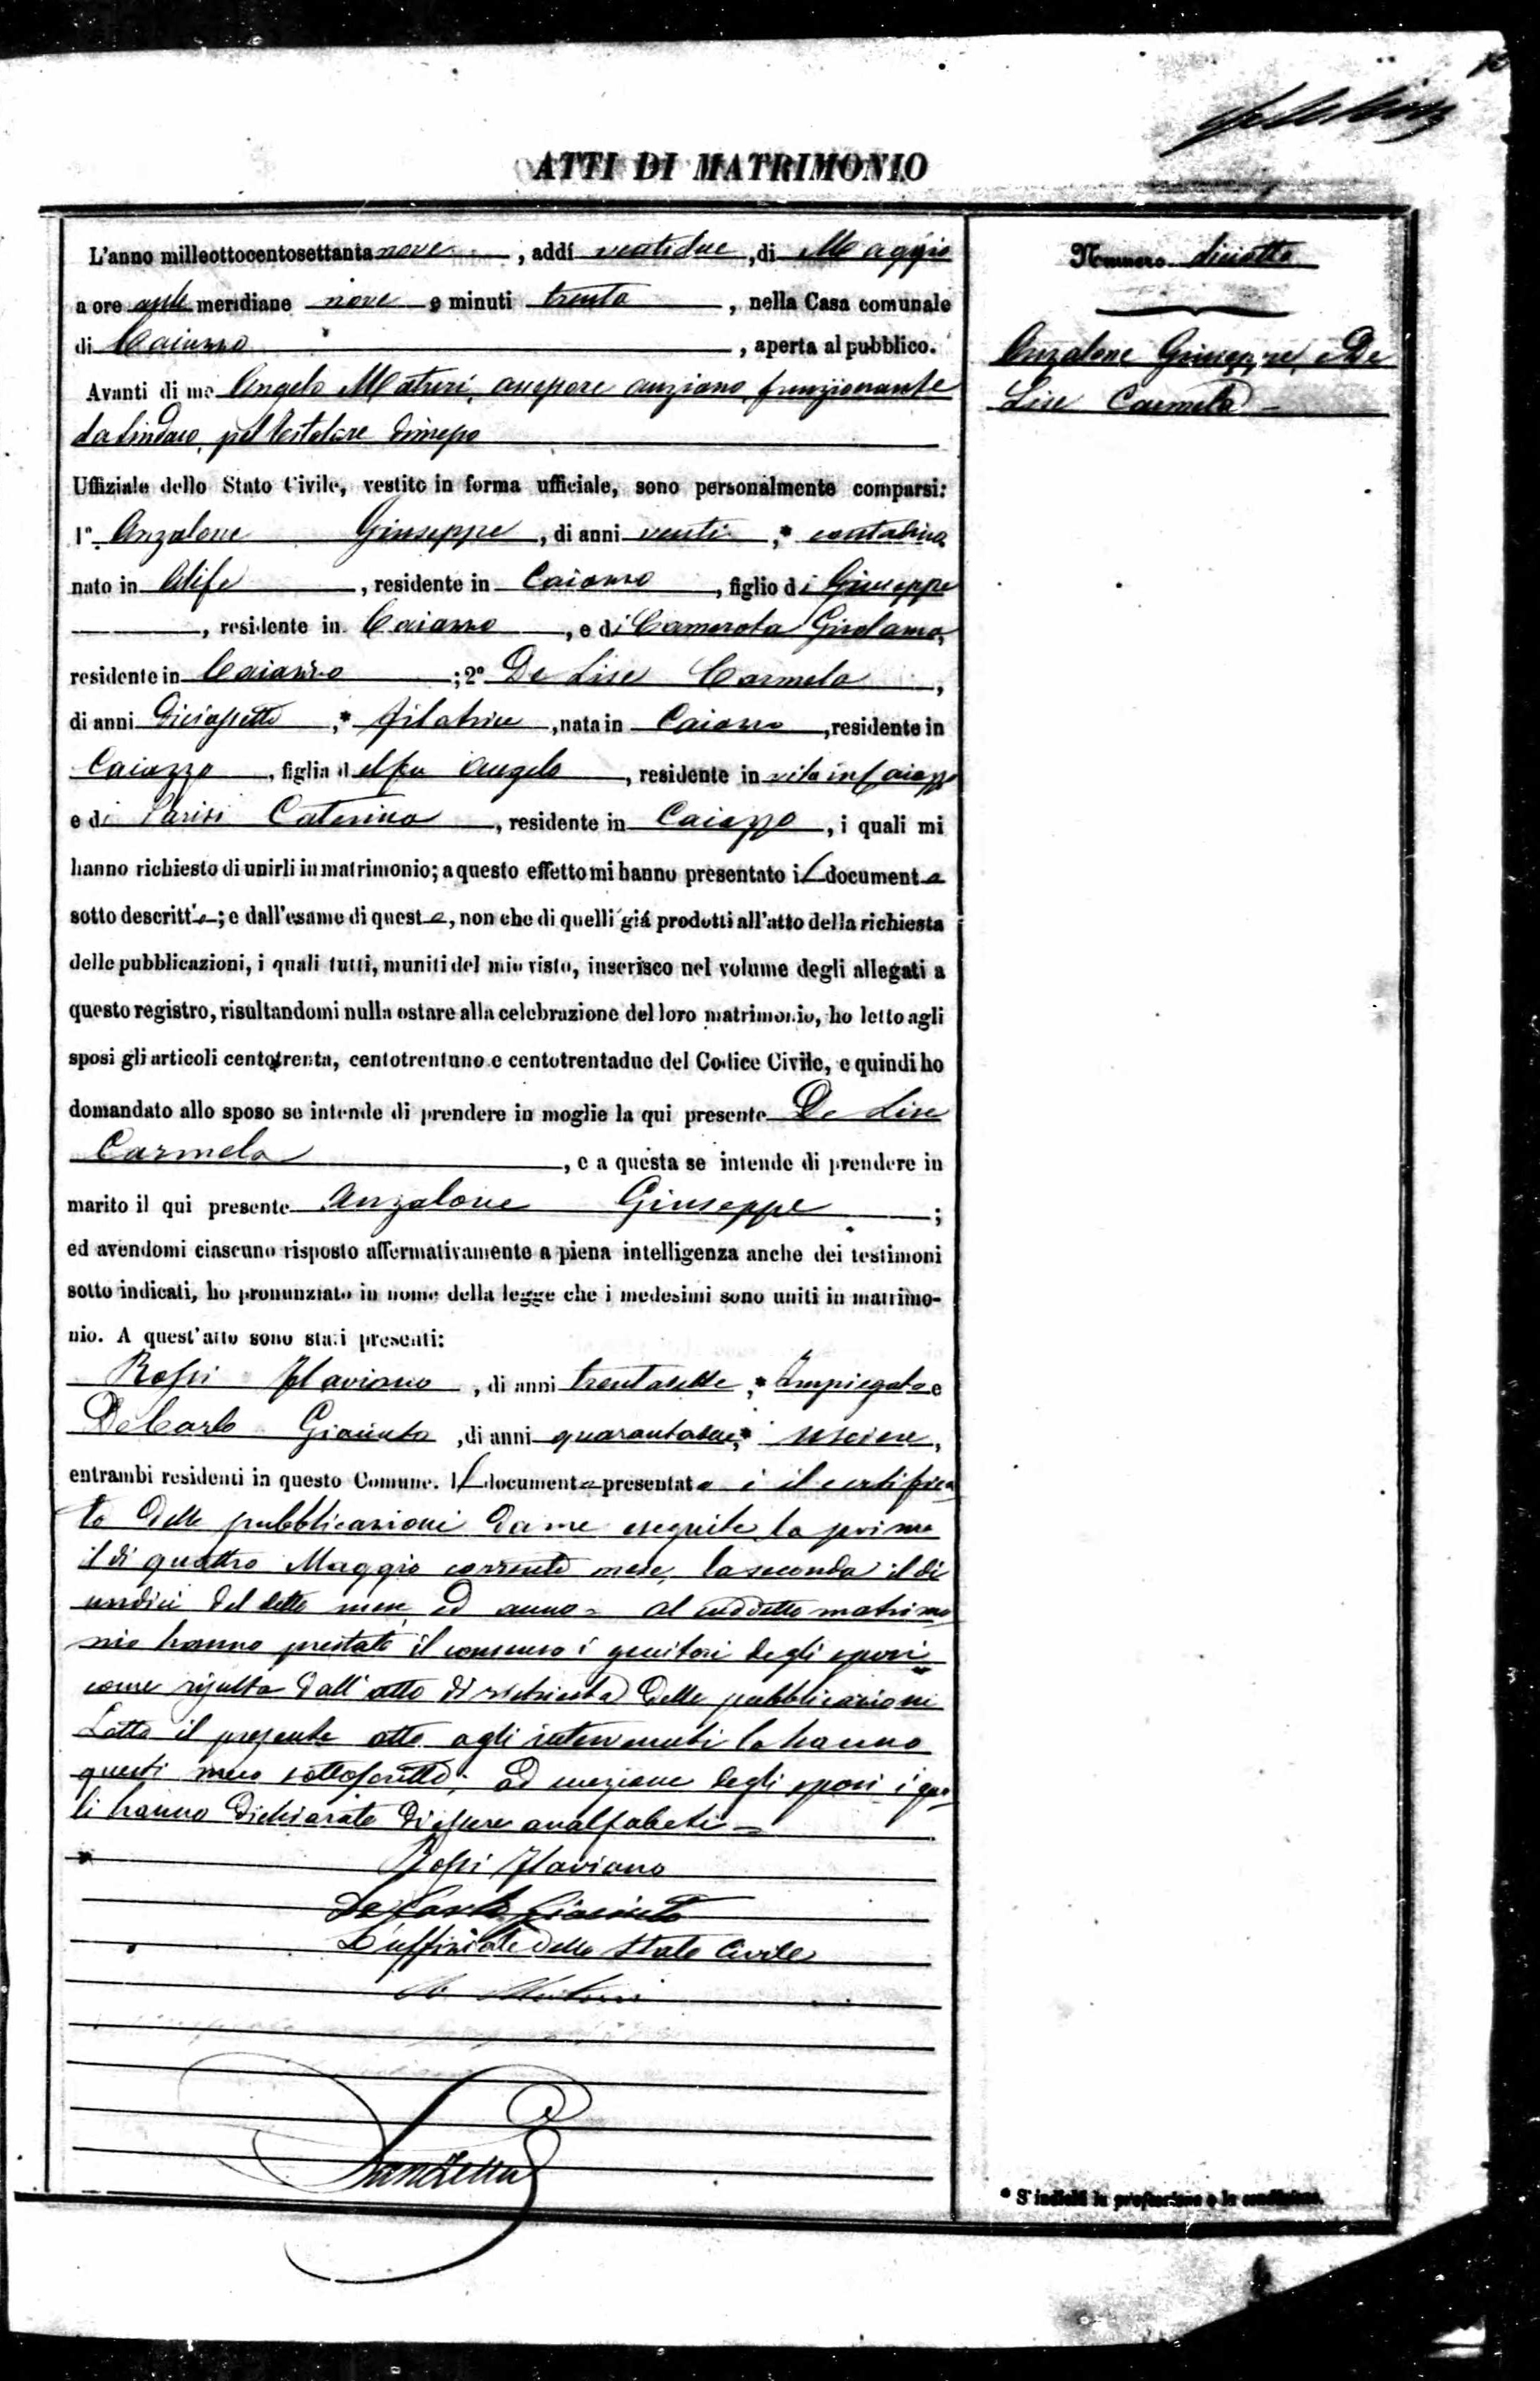 ATTI DI MATRIMONIO
Numero diciotto
Anzalone Giuseppe, e De
Lise Carmela
L'anno milleottocentosettantanove, addì ventidue, di Maggio
a ore antimeridiane nove e minuti trenta, nella Casa comunale
di Caiazzo, aperta al pubblico.
Avanti di me Angelo Maturi, assessore anziano, funzionante
da Sindaco, pel titolare dimesso
Uffiziale dello Stato Civile, vestito in forma ufficiale, sono personalmente comparsi:
1º. Anzalone Giuseppe, di anni venti, * contadino
nato in Alife, residente in Caiazzo, figlio di Giuseppe
, residente in Caiazzo, e di Camerota Girolama,
residente in Caiazzo; 2º De Lise Carmela,
di anni diciassette, * filatrice, nata in Caiazzo, residente in
Caiazzo, figlia del fu Angelo, residente in vita in Caiazzo
e di Parisi Caterina, residente in Caiazzo, i quali mi
hanno richiesto di unirli in matrimonio; a questo effetto mi hanno presentato il documento
sotto descritto; e dall'esame di questo, non che di quelli giá prodotti all'atto della richiesta
delle pubblicazioni, i quali tutti, muniti del mio visto, inserisco nel volume degli allegati a
questo registro, risultandomi nulla ostare alla celebrazione del loro matrimonio, ho letto agli
sposi gli articoli centotrenta, centotrentuno e centotrentadue del Codice Civile, e quindi ho
domandato allo sposo se intende di prendere in moglie la qui presente De Lise
Carmela, e a questa se intende di prendere in
marito il qui presente Anzalone Giuseppe;
ed avendomi ciascuno risposto affermativamente a piena intelligenza anche dei testimoni
sotto indicati, ho pronunziato in nome della legge che i medesimi sono uniti in matrimo-
nio. A quest'atto sono stati presenti:
Rossi Flaviano, di anni trentasette, * Impiegato e
De Carlo Giacinto, di anni quarantadue, * usciere,
entrambi residenti in questo Comune. Il documento presentato è il certifica
to delle pubblicazioni da me eseguite la prima
il di quattro Maggio corrente mese, la seconda il di
undici del detto mese ed anno = Al suddetto matrimo
nio hanno prestato il consenso i genitori degli sposi
come risulta dall'atto di richiesta delle pubblicazioni
Letto il presente atto agli intervenuti lo hanno
questi meco sottoscritto, ad eccezione degli sposi i qua
li hanno dichiarato di essere analfabeti =
Rossi Flaviano
De Carlo Giacinto
L'uffiziale dello Stato Civile
A. Maturi
* S'indichi la professione o la condizione.